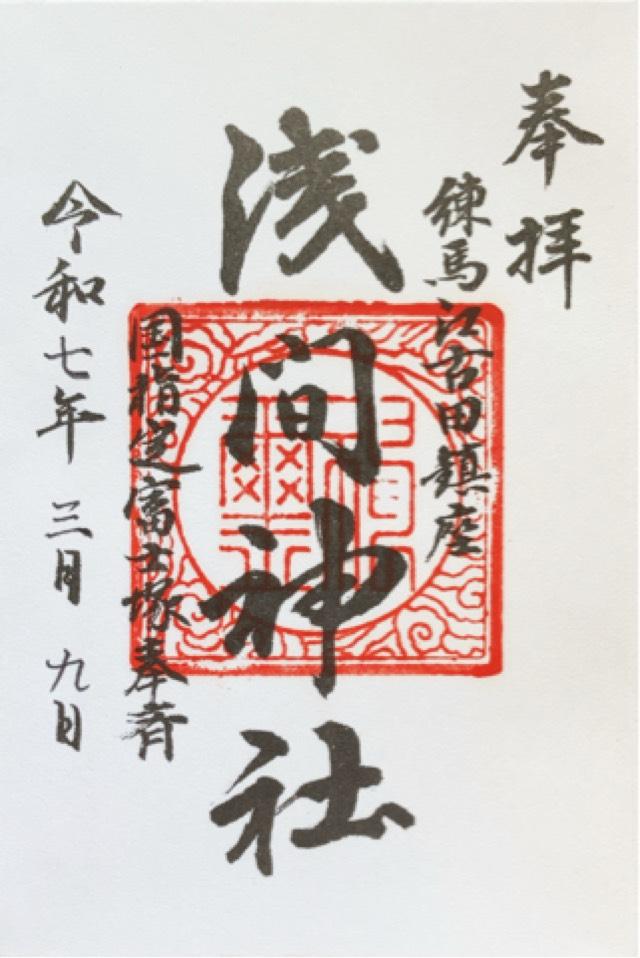 奉拝
練馬江古田鎮座
浅間神社
国指定富士塚奉斉
令和七年 三月 九日